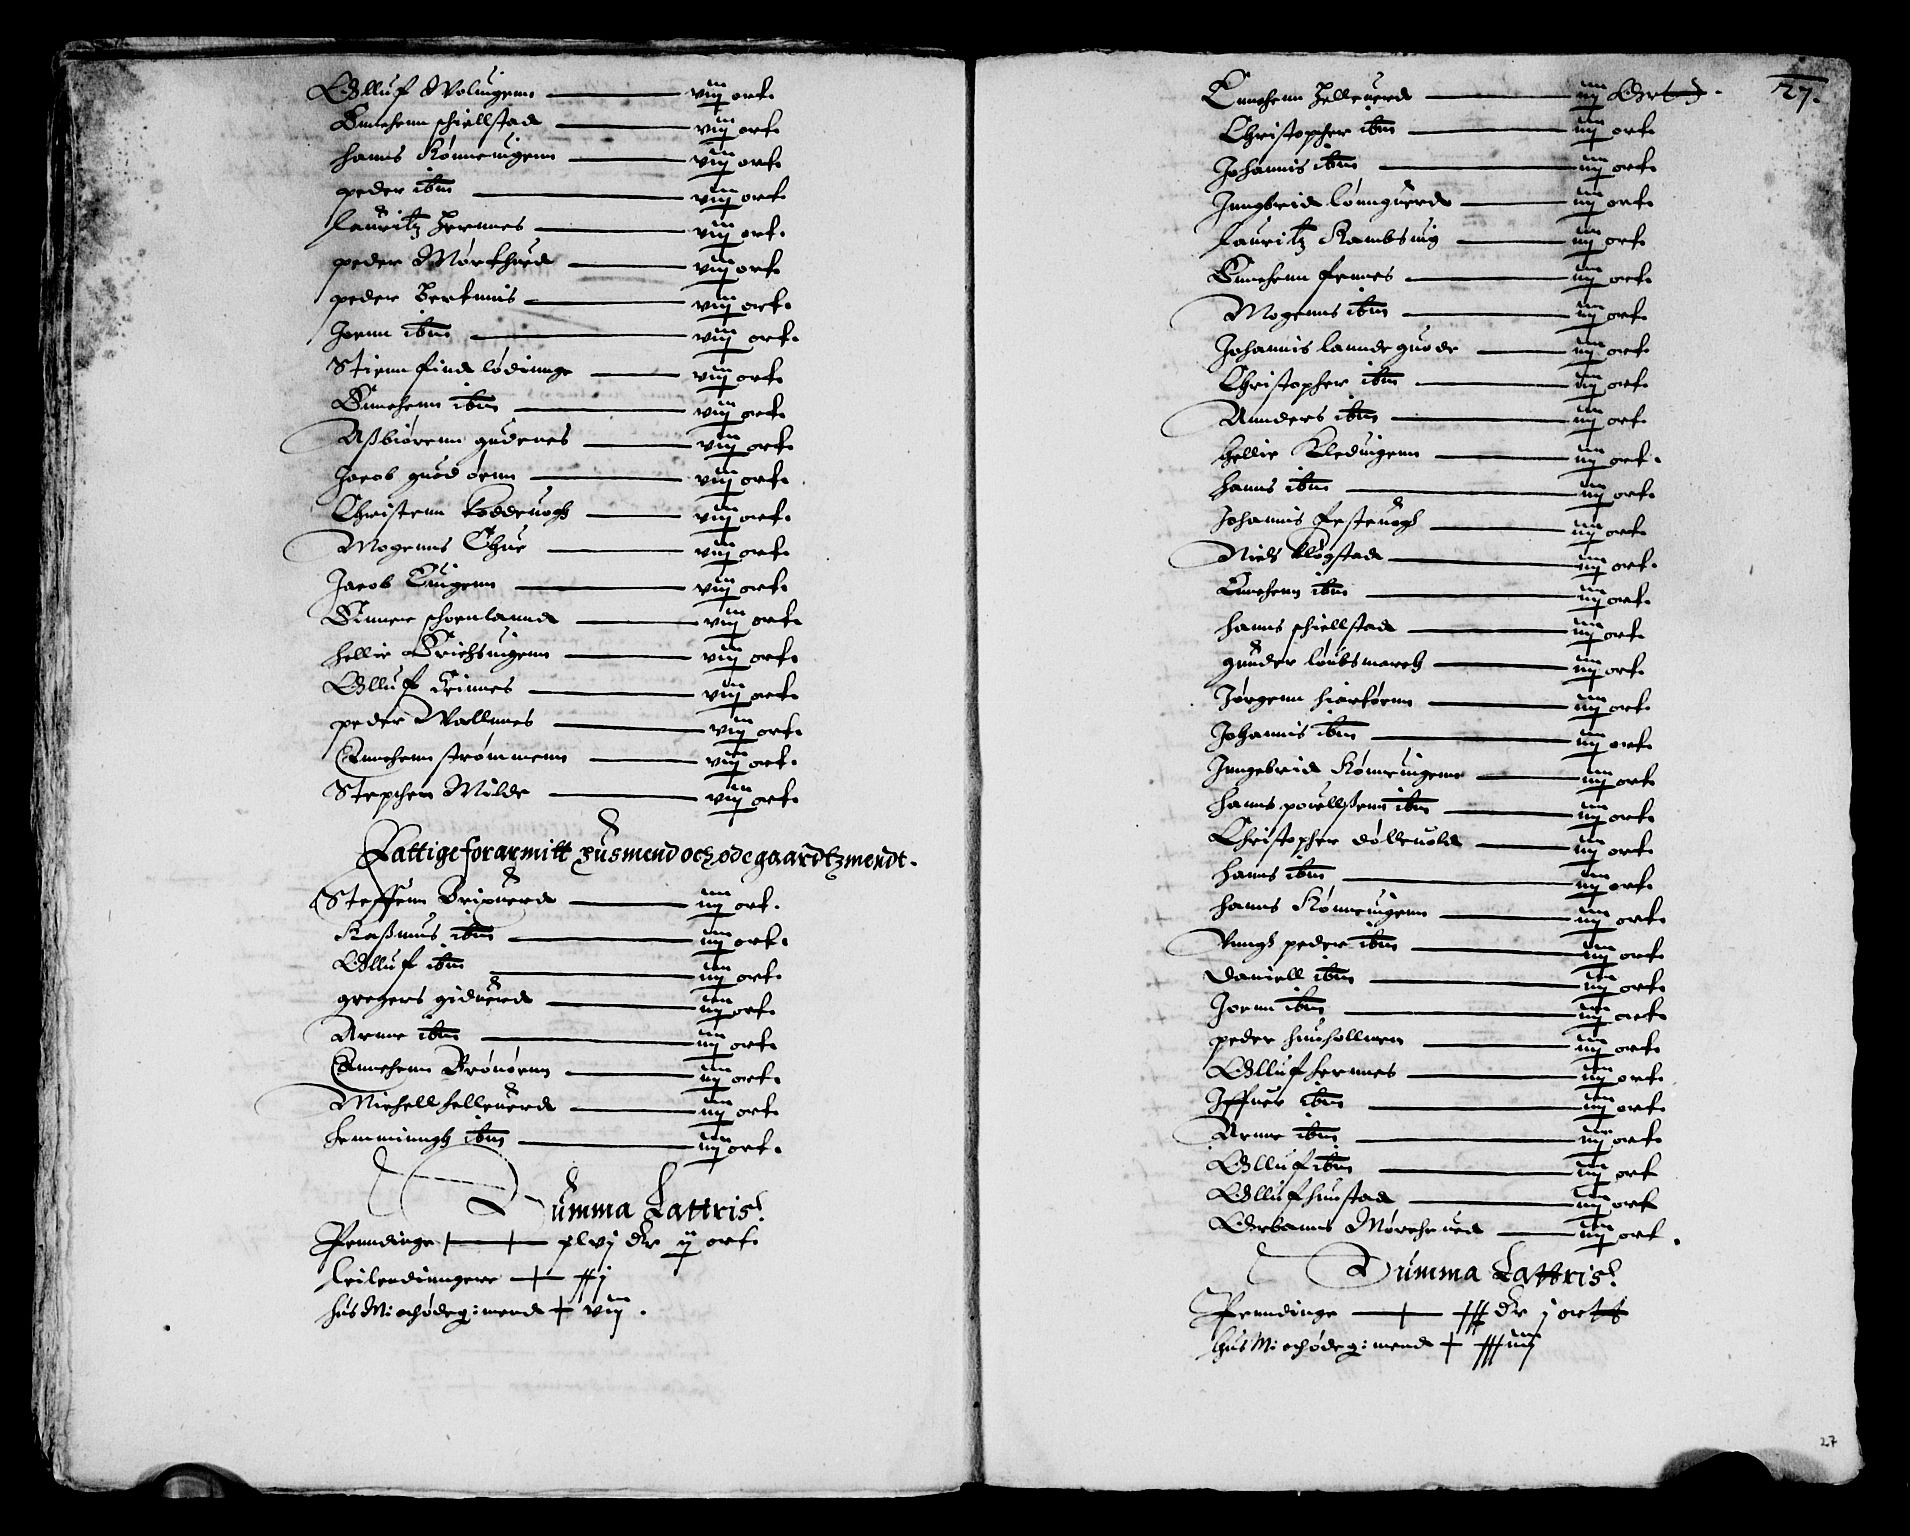 Olluf Wolnigenn — viij ort.
Simehenn schiellstad — viij ort.
Hanns Rønneuigenn — viij ort.
peder ibm — viij ort.
Lauritz Hernnes — viij ort.
peder Mørkhued — viij ort.
peder Bertnnis — viij ort.
Jorenn ibm — viij ort.
Stienn find lødinge — viij ort.
Simehenn ibm — viij ort.
Aßbiørenn gudenes — viij ort.
Jacob guod ørenn — viij ort.
Christenn Kodduogh — viij ort.
Mogenns Ehue — viij ort.
Jacob Euigenn — viij ort.
Sinner schoenlannd — viij ort.
Hellie Erichsuigenn — viij ort.
Olluf Leinnes — viij ort.
peder Wallnnes — viij ort.
Ennehenn strømmenn — viij ort.
Stephen Milde — viij ort.
Fattige forarmitt Husmend och ødegaardtzmendt.
Steffenn Brixuerd — iiij ort.
Raßmus ibm — iiij ort.
Olluf ibm — iiij ort.
gregers giduerd — iiij ort.
Arnne ibm — iiij ort.
Ennehenn Brønørenn — iiij ort.
Michell helleuerd — iiij ort.
Hemmingh ibm — iiij ort.
Summa Lattris.
Penndinge — xlvj dr ij ort.
Leilendinngere — xxj
Hus M: och øde g: mend — viij.
27.
Ennehenn Helleuerd — iiij Ort
Christopher ibm — iiij ort.
Johannis ibm — iiij ort.
Jnngbrid lønnguerd — iiij ort.
Lauritz Rambsuig — iiij ort.
Simehenn fennes — iiij ort.
Mogenns ibm — iiij ort.
Johannis lanndeguode — iiij ort.
Christopher ibm — iiij ort.
Annders ibm — iiij ort.
Hellie Kleduigenn — iiij ort.
Hanns ibm — iiij ort.
Johannis Festeuogh — iiij ort.
Niels Klogstad — iiij ort.
Ennehenn ibm — iiij ort.
Hanns schiellstad — iiij ort.
gunder løubsmarch — iiij ort.
Jørgenn hiartøenn — iiij ort.
Johannis ibm — iiij ort.
Jnngebrid Rønneuigenn — iiij ort.
Hanns pouellßenn ibm — iiij ort.
Christopher dølleuold — iiij ort.
Hanns ibm — iiij ort.
Hanns Rønneuigenn — iiij ort.
Vnngh peder ibm — iiij ort.
Daniell ibm — iiij ort.
Joenn ibm — iiij ort.
peder hunhollmen — iiij ort.
Olluf hernnes — iiij ort.
Jffuer ibm — iiij ort.
Arnne ibm — iiij ort.
Olluf ibm — iiij ort
Olluf hunstad — iiij ort
Orbanus Mørchued — iiij ort.
Summa Lattris.
Penndinge — xxx dr j ort
Hus M: och øde g: mend — xxxiiij
27